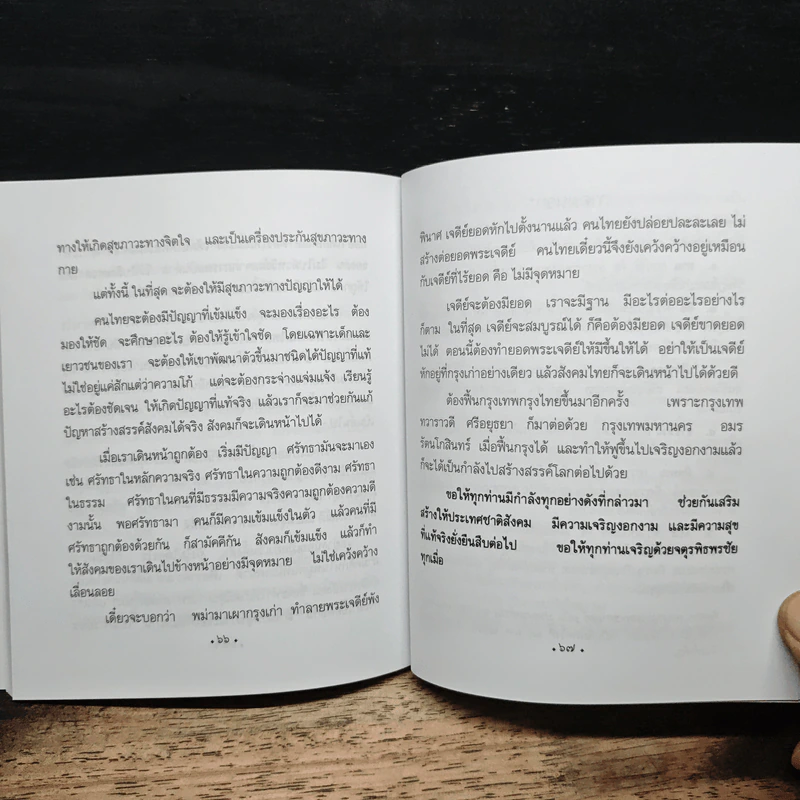 ทางให้เกิดสุขภาวะทางจิตใจ และเป็นเครื่องประกันสุขภาวะทาง
กาย
แต่ทั้งนี้ ในที่สุด จะต้องให้มีสุขภาวะทางปัญญาให้ได้
คนไทยจะต้องมีปัญญาที่เข้มแข็ง จะมองเรื่องอะไร ต้อง
มองให้ชัด จะศึกษาอะไร ต้องให้รู้เข้าใจชัด โดยเฉพาะเด็กและ
เยาวชนของเรา จะต้องให้เขาพัฒนาตัวขึ้นมาชนิดได้ปัญญาที่แท้
ไม่ใช่อยู่แค่สักแต่ว่าความโก้ แต่จะต้องกระจ่างแจ่มแจ้ง เรียนรู้
อะไรต้องชัดเจน ให้เกิดปัญญาที่แท้จริง แล้วเราก็จะมาช่วยกันแก้
ปัญหาสร้างสรรค์สังคมได้จริง สังคมก็จะเดินหน้าไปได้
เมื่อเราเดินหน้าถูกต้อง เริ่มมีปัญญา ศรัทธามันจะมาเอง
เช่น ศรัทธาในหลักความจริง ศรัทธาในความถูกต้องดีงาม ศรัทธา
ในธรรม ศรัทธาในคนที่มีธรรมมีความจริงความถูกต้องความดี
งามนั้น พอศรัทธามา คนก็มีความเข้มแข็งในตัว แล้วคนที่มี
ศรัทธาถูกต้องด้วยกัน ก็สามัคคีกัน สังคมก็เข้มแข็ง แล้วก็ทำ
ให้สังคมของเราเดินไปข้างหน้าอย่างมีจุดหมาย ไม่ใช่เคว้งคว้าง
เลื่อนลอย
เดี๋ยวจะบอกว่า พม่ามาเผากรุงเก่า ทำลายพระเจดีย์พัง
• ๖๖ •
พินาศ เจดีย์ยอดหักไปตั้งนานแล้ว คนไทยยังปล่อยปละละเลย ไม่
สร้างต่อยอดพระเจดีย์ คนไทยเดี๋ยวนี้จึงยังเคว้งคว้างอยู่เหมือน
กับเจดีย์ที่ไร้ยอด คือ ไม่มีจุดหมาย
เจดีย์จะต้องมียอด เราจะมีฐาน มีอะไรต่ออะไรอย่างไร
ก็ตาม ในที่สุด เจดีย์จะสมบูรณ์ได้ ก็คือต้องมียอด เจดีย์ขาดยอด
ไม่ได้ ตอนนี้ต้องทำยอดพระเจดีย์ให้มีขึ้นให้ได้ อย่าให้เป็นเจดีย์
หักอยู่ที่กรุงเก่าอย่างเดียว แล้วสังคมไทยก็จะเดินหน้าไปได้ด้วยดี
ต้องฟื้นกรุงเทพกรุงไทยขึ้นมาอีกครั้ง เพราะกรุงเทพ
ทวาราวดี ศรีอยุธยา ก็มาต่อด้วย กรุงเทพมหานคร อมร
รัตนโกสินทร์ เมื่อฟื้นกรุงได้ และทำให้ฟูขึ้นไปเจริญงอกงามแล้ว
ก็จะได้เป็นกำลังไปสร้างสรรค์โลกต่อไปด้วย
ขอให้ทุกท่านมีกำลังทุกอย่างดังที่กล่าวมา ช่วยกันเสริม
สร้างให้ประเทศชาติสังคม มีความเจริญงอกงาม และมีความสุข
ที่แท้จริงยั่งยืนสืบต่อไป ขอให้ทุกท่านเจริญด้วยจตุรพิธพรชัย
ทุกเมื่อ
• ๖๗ •